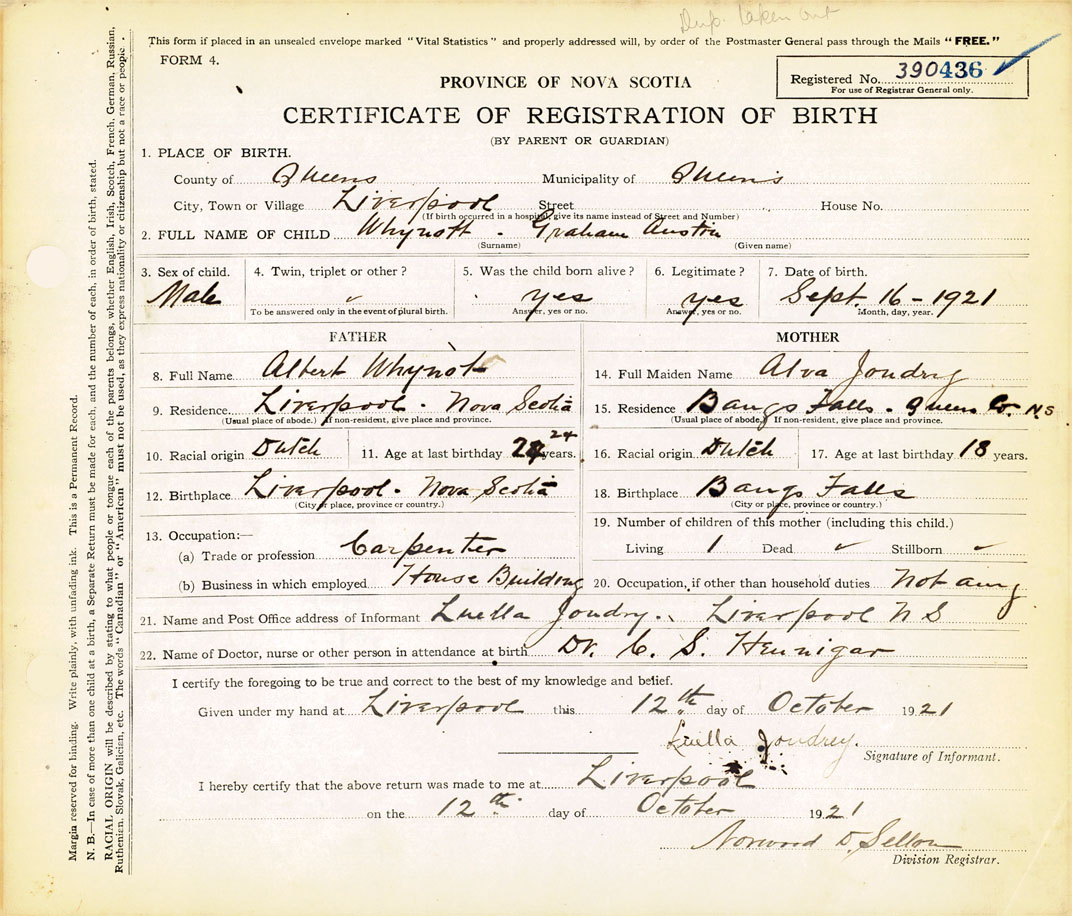 Dup. taken out
This form if placed in an unsealed envelope marked "Vital Statistics" and properly addressed will, by order of the Postmaster General pass through the Mails "FREE."
FORM 4.
Registered No. 390436
For use of Registrar General only.
PROVINCE OF NOVA SCOTIA
CERTIFICATE OF REGISTRATION OF BIRTH
(BY PARENT OR GUARDIAN)
1. PLACE OF BIRTH.
County of Queens Municipality of Queens
City, Town or Village Liverpool Street House No.
(If birth occurred in a hospital, give its name instead of Street and Number)
2. FULL NAME OF CHILD Whynott - Graham Austin
(Surname) (Given name)
3. Sex of child. 4. Twin, triplet or other? 5. Was the child born alive? 6. Legitimate? 7. Date of birth.
Male yes yes Sept. 16 - 1921
To be answered only in the event of plural birth. Answer, yes or no. Answer, yes or no. Month, day, year.
FATHER MOTHER
8. Full Name Albert Whynot 14. Full Maiden Name Alva Joudry
9. Residence Liverpool - Nova Scotia 15. Residence Bangs Falls - Queens Co. N S
(Usual place of abode.) If non-resident, give place and province. (Usual place of abode.) If non-resident, give place and province.
10. Racial origin Dutch 11. Age at last birthday 24 years. 16. Racial origin Dutch 17. Age at last birthday 18 years.
12. Birthplace Liverpool - Nova Scotia 18. Birthplace Bangs Falls
(City or place, province or country.) (City or place, province or country.)
13. Occupation:— 19. Number of children of this mother (including this child.)
(a) Trade or profession Carpenter Living 1 Dead Stillborn
(b) Business in which employed House Building 20. Occupation, if other than household duties Not any
21. Name and Post Office address of Informant Luella Joudry. Liverpool N S
22. Name of Doctor, nurse or other person in attendance at birth Dr. C. S. Hennigar
I certify the foregoing to be true and correct to the best of my knowledge and belief.
Given under my hand at Liverpool this 12th day of October 1921
Luella Joudrey.
Signature of Informant.
I hereby certify that the above return was made to me at Liverpool
on the 12th day of October 1921
Norwood D.
Division Registrar.
Margin reserved for binding. Write plainly, with unfading ink. This is a Permanent Record.
N. B.—In case of more than one child at a birth, a Separate Return must be made for each, and the number of each, in order of birth, stated.
RACIAL ORIGIN will be described by stating to what people or tongue each of the parents belongs, whether English, Irish, Scotch, French, German, Russian,
Ruthenian, Slovak, Galician, etc. The words "Canadian" or "American" must not be used, as they express nationality or citizenship but not a race or people.